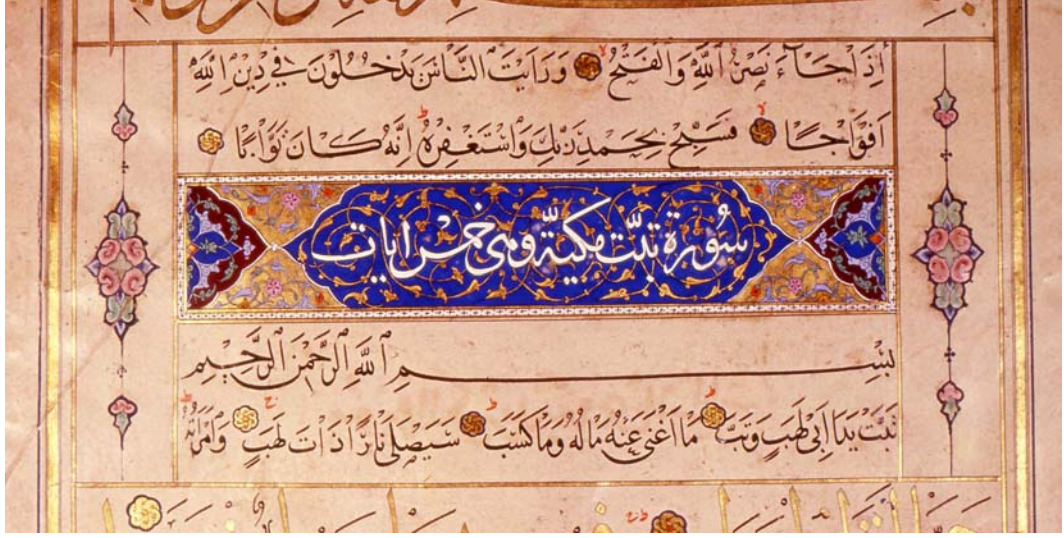 اِذَا جَآءَ نَصْرُ اللّٰهِ وَالْفَتْحُ وَرَاَيْتَ النَّاسَ يَدْخُلُونَ فِي دِينِ اللّٰهِ
اَفْوَاجًا فَسَبِّحْ بِحَمْدِ رَبِّكَ وَاسْتَغْفِرْهُ اِنَّهُ كَانَ تَوَّابًا
سُورة تبّت مكيّة وهي خمس ايات
بِسْمِ اللّٰهِ الرَّحْمٰنِ الرَّحِيمِ
تَبَّتْ يَدَا اَبِي لَهَبٍ وَتَبَّ مَا اَغْنٰى عَنْهُ مَالُهُ وَمَا كَسَبَ سَيَصْلٰى نَارًا ذَاتَ لَهَبٍ وَامْرَاَتُهُ